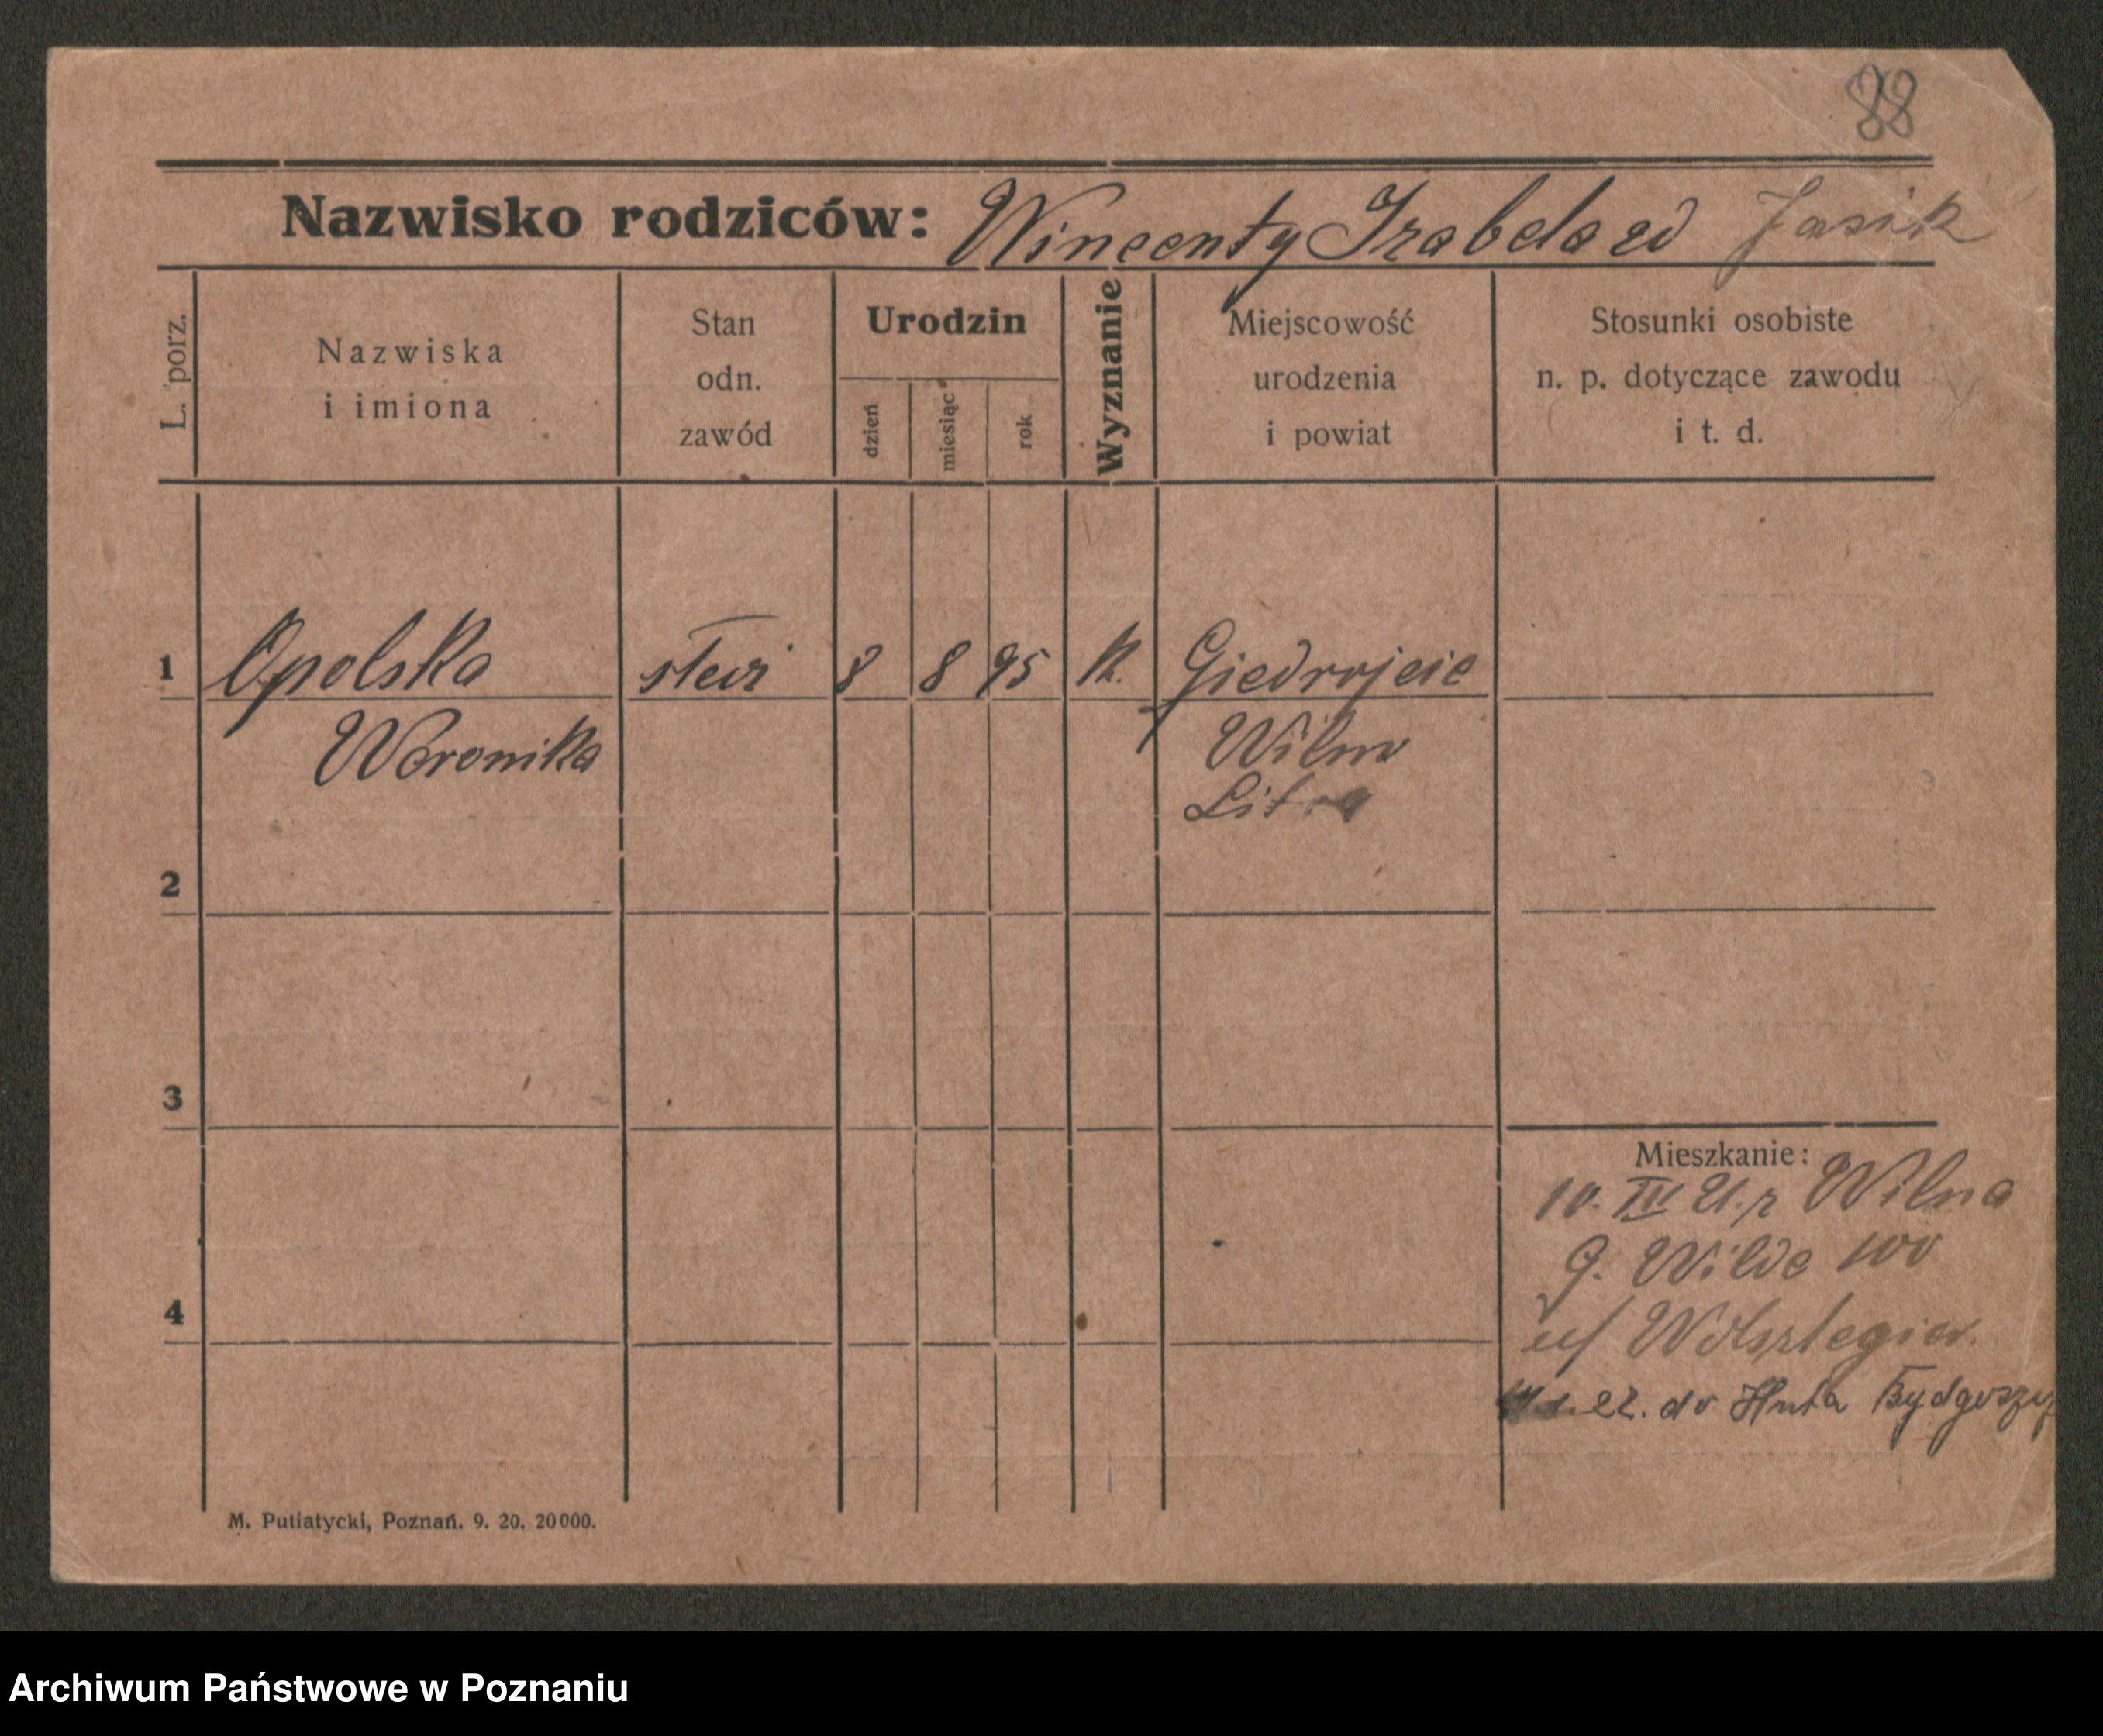 88
Nazwisko rodziców: Wincenty Izabela zd Jasik
L. porz.
Nazwiska
i imiona
Stan
odn.
zawód
Urodzin
dzień
miesiąc
rok
Wyznanie
Miejscowość
urodzenia
i powiat
Stosunki osobiste
n. p. dotyczące zawodu
i t. d.
1 Opolska 8 8 95 k. Giedrojcie
Weronika Wilno
2
3
4
Mieszkanie:
10. IV 21. r Wilna
G. Wilde 100
22. do Huta Bydgoszcz
M. Putiatycki, Poznań. 9. 20. 20000.
Archiwum Państwowe w Poznaniu